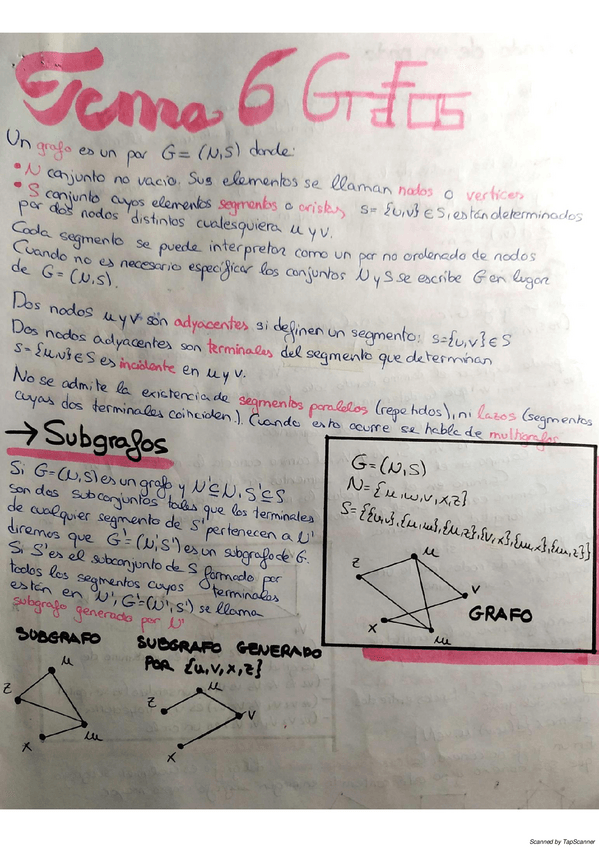 Tema 6 Grafos
Un grafo es un par G = (N,S) donde:
• N conjunto no vacio. Sus elementos se llaman nodos o vertices
• S conjunto cuyos elementos segmentos o aristas, s = {u,v} ∈ S, están determinados
por dos nodos distintos cualesquiera u y v.
Cada segmento se puede interpretar como un par no ordenado de nodos
Cuando no es necesario especificar los conjuntos N y S se escribe G en lugar
de G = (N,S).
Dos nodos u y v son adyacentes si definen un segmento: s={u,v} ∈ S
Dos nodos adyacentes son terminales del segmento que determinan
s = {u,v} ∈ S es incidente en u y v.
No se admite la existencia de segmentos paralelos (repetidos), ni lazos (segmentos
cuyas dos terminales coinciden.). Cuando esto ocurre se habla de multigrafos
→ Subgrafos
Si G=(N,S) es un grafo y N'⊆N, S'⊆S
son dos subconjuntos tales que los terminales
de cualquier segmento de S' pertenecen a N'
diremos que G'=(N',S') es un subgrafo de G.
Si S' es el subconjunto de S formado por
todos los segmentos cuyos terminales
están en N', G'=(N',S') se llama
subgrafo generado por N'
G=(N,S)
N={u,w,v,x,z}
S={{u,v},{u,w},{u,z},{v,x},{w,x},{w,z}}
u
z
v
GRAFO
x
w
SUBGRAFO
u
z
w
x
SUBGRAFO GENERADO
POR {u,v,x,z}
u
z
v
x
Scanned by TapScanner